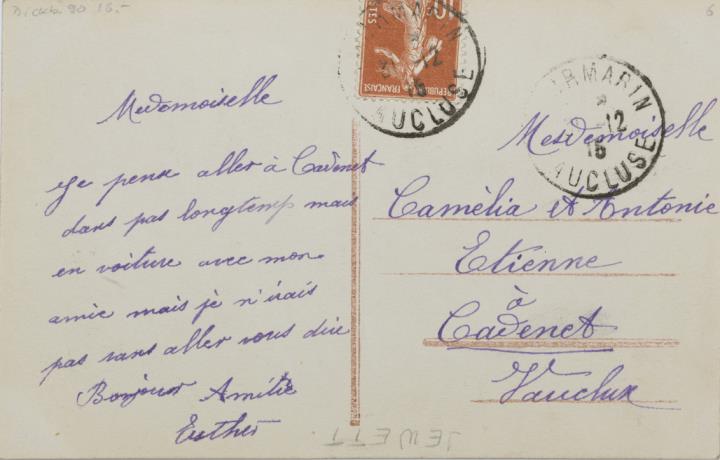 Mademoiselle
Je pense aller à Cadenet
dans pas longtemp mais
en voiture avec mon
amie mais je n'irais
pas sans aller vous dire
Bonjour Amitié
Esther
10
POSTES
REPUBLIQUE FRANÇAISE
RMARIN
12
15
VAUCLUSE
Mesdemoiselle
Camèlia et Antonie
Etienne
à
Cadenet
Vaucluse
JEWETT
6